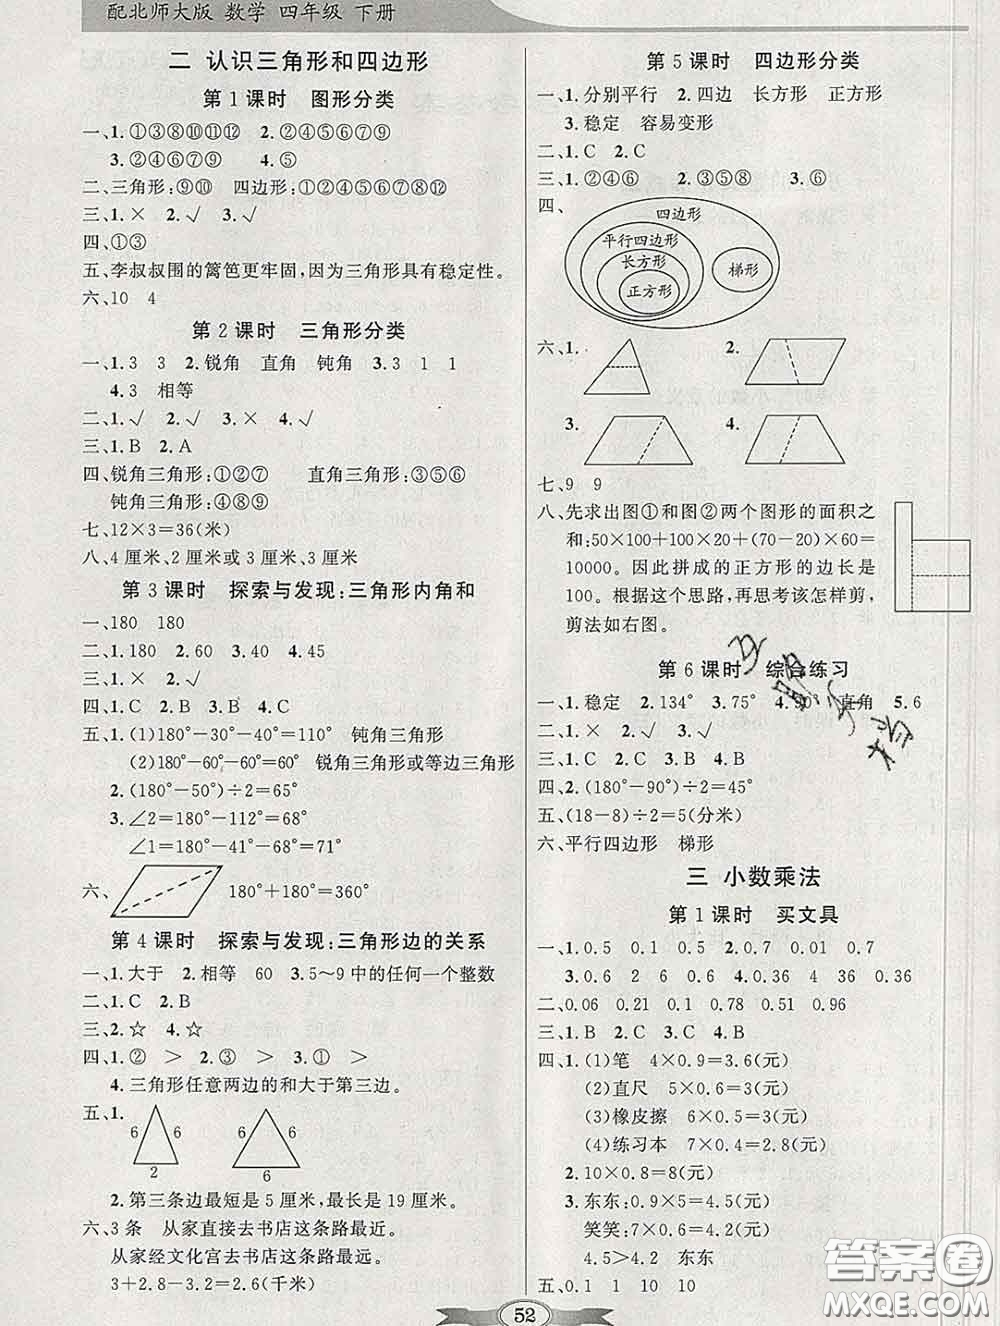 配北师大版 数学 四年级 下册
二 认识三角形和四边形
第1课时 图形分类
一、1.①③⑧⑩⑪⑫ 2.②④⑥⑦⑨
3.②④⑥⑦⑨ 4.⑤
二、三角形:⑨⑩ 四边形:①⑤⑥⑧⑫
三、1.× 2.√ 3.√
四、①③
五、李叔叔围的篱笆更牢固,因为三角形具有稳定性。
六、10 4
第2课时 三角形分类
一、1.3 3 2.锐角 直角 钝角 3.3 1 1
4.3 相等
二、1.√ 2.√ 3.× 4.√
三、1.B 2.A
四、锐角三角形:①②⑦ 直角三角形:③⑤⑥
钝角三角形:④⑧⑨
七、12×3=36(米)
八、4厘米、2厘米或3厘米、3厘米
第3课时 探索与发现:三角形内角和
一、180 180
二、1.180 2.60 3.40 4.45
三、1.× 2.√
四、1.C 2.B 3.B 4.C
五、1.(1)180°-30°-40°=110° 钝角三角形
(2)180°-60°-60°=60° 锐角三角形或等边三角形
2.(180°-50°)÷2=65°
3.∠2=180°-112°=68°
∠1=180°-41°-68°=71°
六、 180°+180°=360°
第4课时 探索与发现:三角形边的关系
一、1.大于 2.相等 60 3.5~9中的任何一个整数
二、1.C 2.B
三、2.☆ 4.☆
四、1.② > 2.③ > 3.① >
4.三角形任意两边的和大于第三边。
五、1.
6 6 6 6
2
2.第三条边最短是5厘米,最长是19厘米。
六、3条 从家直接去书店这条路最近。
从家经文化宫去书店这条路最远。
3+2.8-3.2=2.6(千米)
第5课时 四边形分类
一、1.分别平行 2.四边 长方形 正方形
3.稳定 容易变形
二、1.C 2.C
三、1.①②④⑥ 2.③⑤⑧ 3.⑥
四、
四边形
平行四边形
长方形
正方形
梯形
六、1. 2.
3. 4.
七、9 9
八、先求出图①和图②两个图形的面积之
和:50×100+100×20+(70-20)×60=
10000。因此拼成的正方形的边长是
100。根据这个思路,再思考该怎样剪,
剪法如右图。
第6课时 综合练习
一、1.稳定 2.134° 3.75° 4.90° 直角 5.6
二、1.× 2.√ 3.√
三、1.C 2.C 3.C 4.B
四、2.(180°-90°)÷2=45°
五、(18-8)÷2=5(分米)
六、平行四边形 梯形
三 小数乘法
第1课时 买文具
一、1.0.5 0.1 0.5 2.0.7 0.01 0.7
3.0.06 0.06 4.0.36 4 0.36 0.36
二、0.06 0.21 0.1 0.78 0.51 0.96
三、1.B 2.C 3.C 4.B
四、1.(1)笔 4×0.9=3.6(元)
(2)直尺 5×0.6=3(元)
(3)橡皮擦 6×0.5=3(元)
(4)练习本 7×0.4=2.8(元)
2.10×0.8=8(元)
3.东东:0.9×5=4.5(元)
笑笑:7×0.6=4.2(元)
4.5>4.2 东东
五、0.1 1 10 10
52
答案圈
MXQE.COM